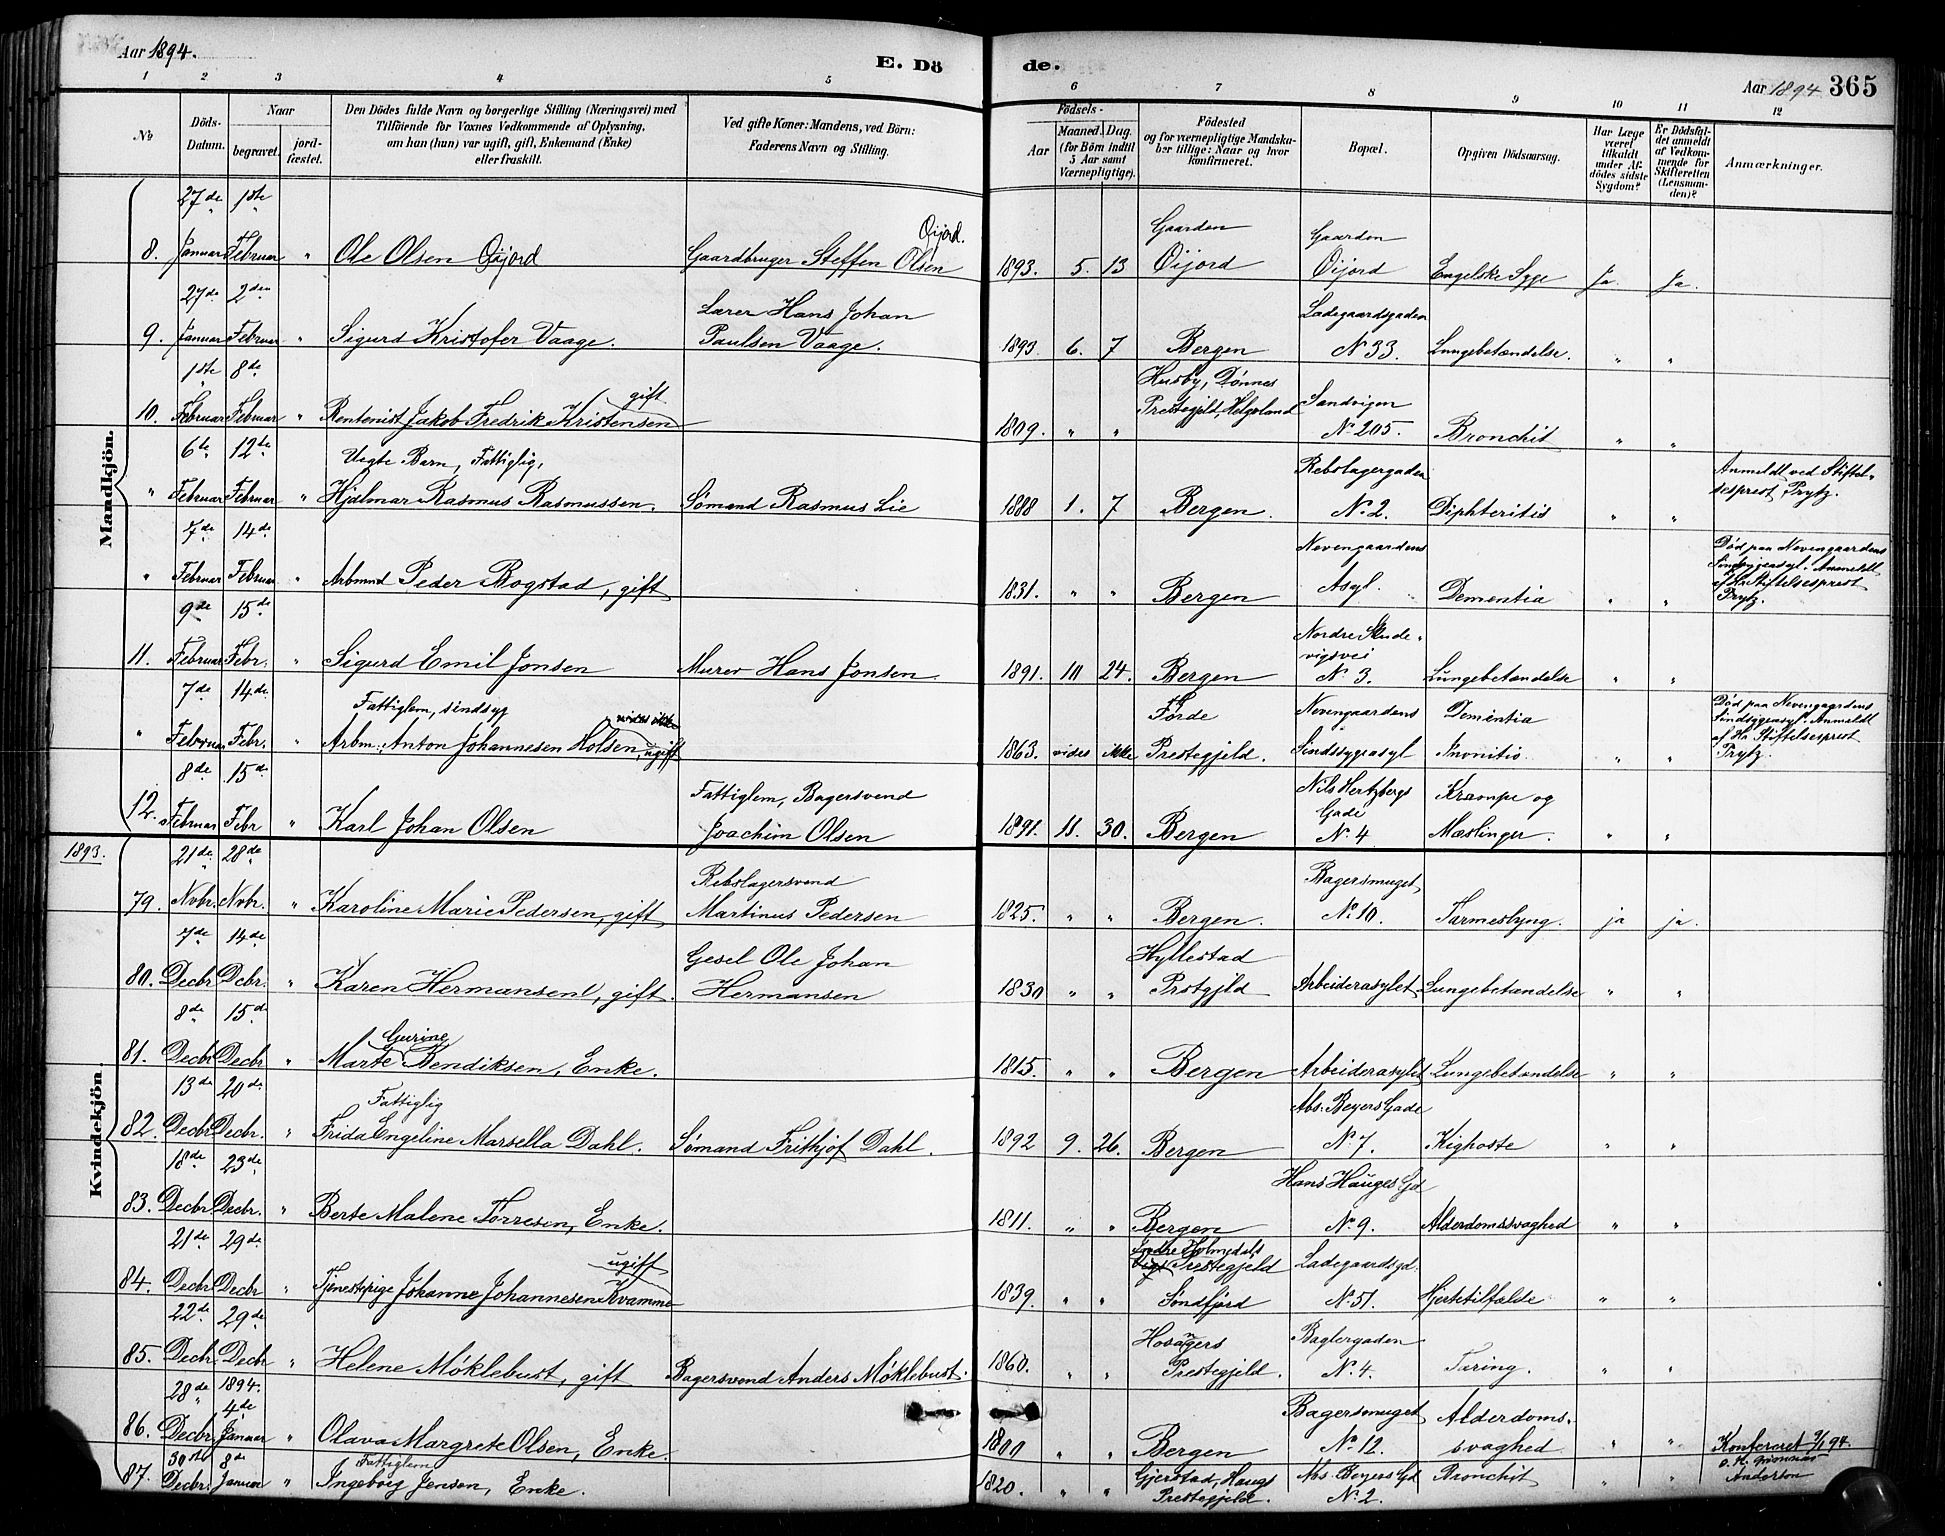 Aar 1894.
E. Dö
de.
Aar 1894
365
1 2 3 4 5 6 7 8 9 10 11 12
No
Döds-
Datum.
Naar
begravet.
jord-
fæstet.
Den Dödes fulde Navn og borgerlige Stilling (Næringsvei) med
Tilföiende for Voxnes Vedkommende af Oplysning,
om han (hun) var ugift, gift, Enkemand (Enke)
eller fraskilt.
Ved gifte Koner: Mandens, ved Börn:
Faderens Navn og Stilling.
Födsels-
Aar
Maaned. Dag.
(for Börn indtil
5 Aar samt
Værnepligtige).
Födested
og for værnepligtige Mandska-
ber tillige: Naar og hvor
konfirmeret.
Bopæl.
Opgiven Dödsaarsag.
Har Læge
været
tilkaldt
under Af-
dödes sidste
Sygdom?
Er Dödsfal-
det anmeldt
af Vedkom-
mende for
Skifteretten
(Lensman-
den)?
Anmærkninger.
Mandkjön.
27de 1ste
Øijord. Gaarden Gaarden
8. Januar Februar " Ole Olsen Øijord Gaardbruger Steffen Olsen 1893. 5. 13 Øijord Øijord Engelske Syge Ja. Ja.
27de 2den
Lærer Hans Johan Ladegaardsgaden
9. Januar Februar " Sigurd Kristofer Vaage. Paulsen Vaage. 1893. 6. 7 Bergen No 33. Lungebetændelse. " "
1ste 8de
gift Husby, Dønnes
10. Februar Februar " Rentenist Jakob Fredrik Kristensen Prestegjeld, Helgeland Sandvigen
1809. " " No 205. Bronchit " "
6te 12te
Uegte Barn, Fattiglig, Rebslagergaden Anmeldt ved Stiftel-
" Februar Februar " Hjalmar Rasmus Rasmussen. Sømand Rasmus Lie 1888 1. 7 Bergen. No 2. Diphteritis " " sesprest Prytz.
7de 14de
Nevengaardens Død paa Nevengaardens
Sindsygeasyl. Anmeldt
" Februar Februar " Arbmnd Peder Bogstad, gift 1831. " " Bergen Asyl. Dementia " " af Hr. Stiftelsesprest
Prytz.
9de 15de
Nordre Skude-
vigsvei
11. Februar Febr. " Sigurd Emil Jonsen Murer Hans Jonsen. 1891. 10 24. Bergen No 3. Lungebetændelse " "
7de 14de
Fattiglem, sindsyg Førde Nevengaardens Dementia Død paa Nevengaardens
Sindsygeasyl. Anmeldt
" Februar Febr. " Arbm. Anton Johannesen Holsen, ugift 1863. vides ikke Prestegjeld. Sindssygeasyl " " af Hr. Stiftelsesprest
Prytz.
8de 15de
Fattiglem, Bagersvend Nils Hertzbergs Krampe og
Gade
12. Februar Febr " Karl Johan Olsen Joachim Olsen 1891. 11. 30. Bergen No. 4 Mæslinger. " "
1893.
Kvindekjön.
21de 28de
Rebslagersvend Bagersmuget
79. Nvbr. Nvbr. " Karoline Marie Pedersen, gift Martinus Pedersen 1825. " " Bergen. No 10. Tarmeslyng. ja ja.
7de 14de
Gesel Ole Johan Hyllestad
80. Decbr. Dcbr. " Karen Hermansen, gift. Hermansen 1830 " " Prstgjld Arbeiderasylet Lungebetændelse " "
8de 15de
Gurine
81. Decbr. Decbr. " Marte Bendiksen, Enke. 1815. " " Bergen Arbeiderasylet Lungebetændelse " "
13de 20de
Fattiglig Abs. Beyers Gade
82. Decbr. Decbr. " Frida Engeline Marsella Dahl. Sømand Frithjof Dahl. 1892 9. 26. Bergen No 7. Kighoste " "
18de 23de
Hans Hauges Gd
83. Decbr. Decbr. " Berte Malene Torresen, Enke. 1811. " " Bergen No. 9. Alderdomssvaghed " "
21de 29de
ugift Indre Holmedals
Prestegjeld Ladegaardsgd.
84. Decbr. Decbr. " Tjenestepige Johanne Johannesen Kvamme 1839. " " Søndfjord No. 51. Hjertetilfælde " "
22de 29de
Baglergaden
85. Decbr. Decbr " Helene Møklebust, gift Bagersvend Anders Møklebust. 1860. " " Prestegjeld. No. 4. Tæring. " "
28de 1894.
4de
Bagersmuget Alderdoms-
86. Decbr. Januar " Olava Margrete Olsen, Enke. 1800 " " Bergen No. 12. svaghed " " Konfereret 9/1 94.
30te 8de
Fattiglem Gjerstad, Haugs Abs. Beyers Gd
87. Decbr. Januar " Ingeborg Jensen, Enke. 1820. " " Prestegjeld. No. 2. Bronchit " " Andersen